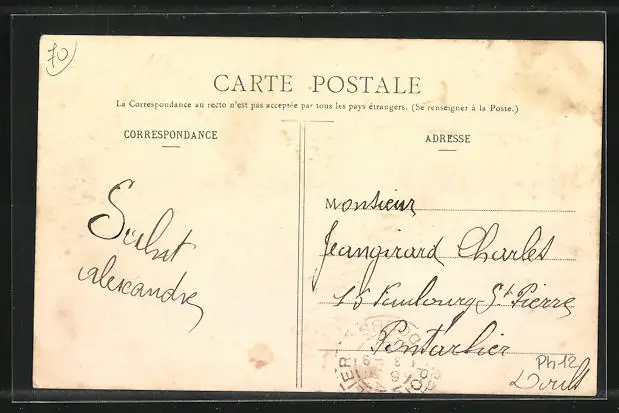 70
CARTE POSTALE
La Correspondance au recto n'est pas acceptée par tous les pays étrangers. (Se renseigner à la Poste.)
CORRESPONDANCE
ADRESSE
alexandre
Monsieur
Jeangirard Charles
15 Faubourg St Pierre
Pontarlier
Ph12
Doubs